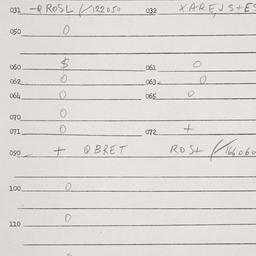 031 -Q ROSL /122050 032 XAREJS+ES
050 0
060 $ 061 0
062 0 063 0
064 0 065 0
070 0
071 0 072 +
090 + QBRET ROST /166060
100 0
110 0